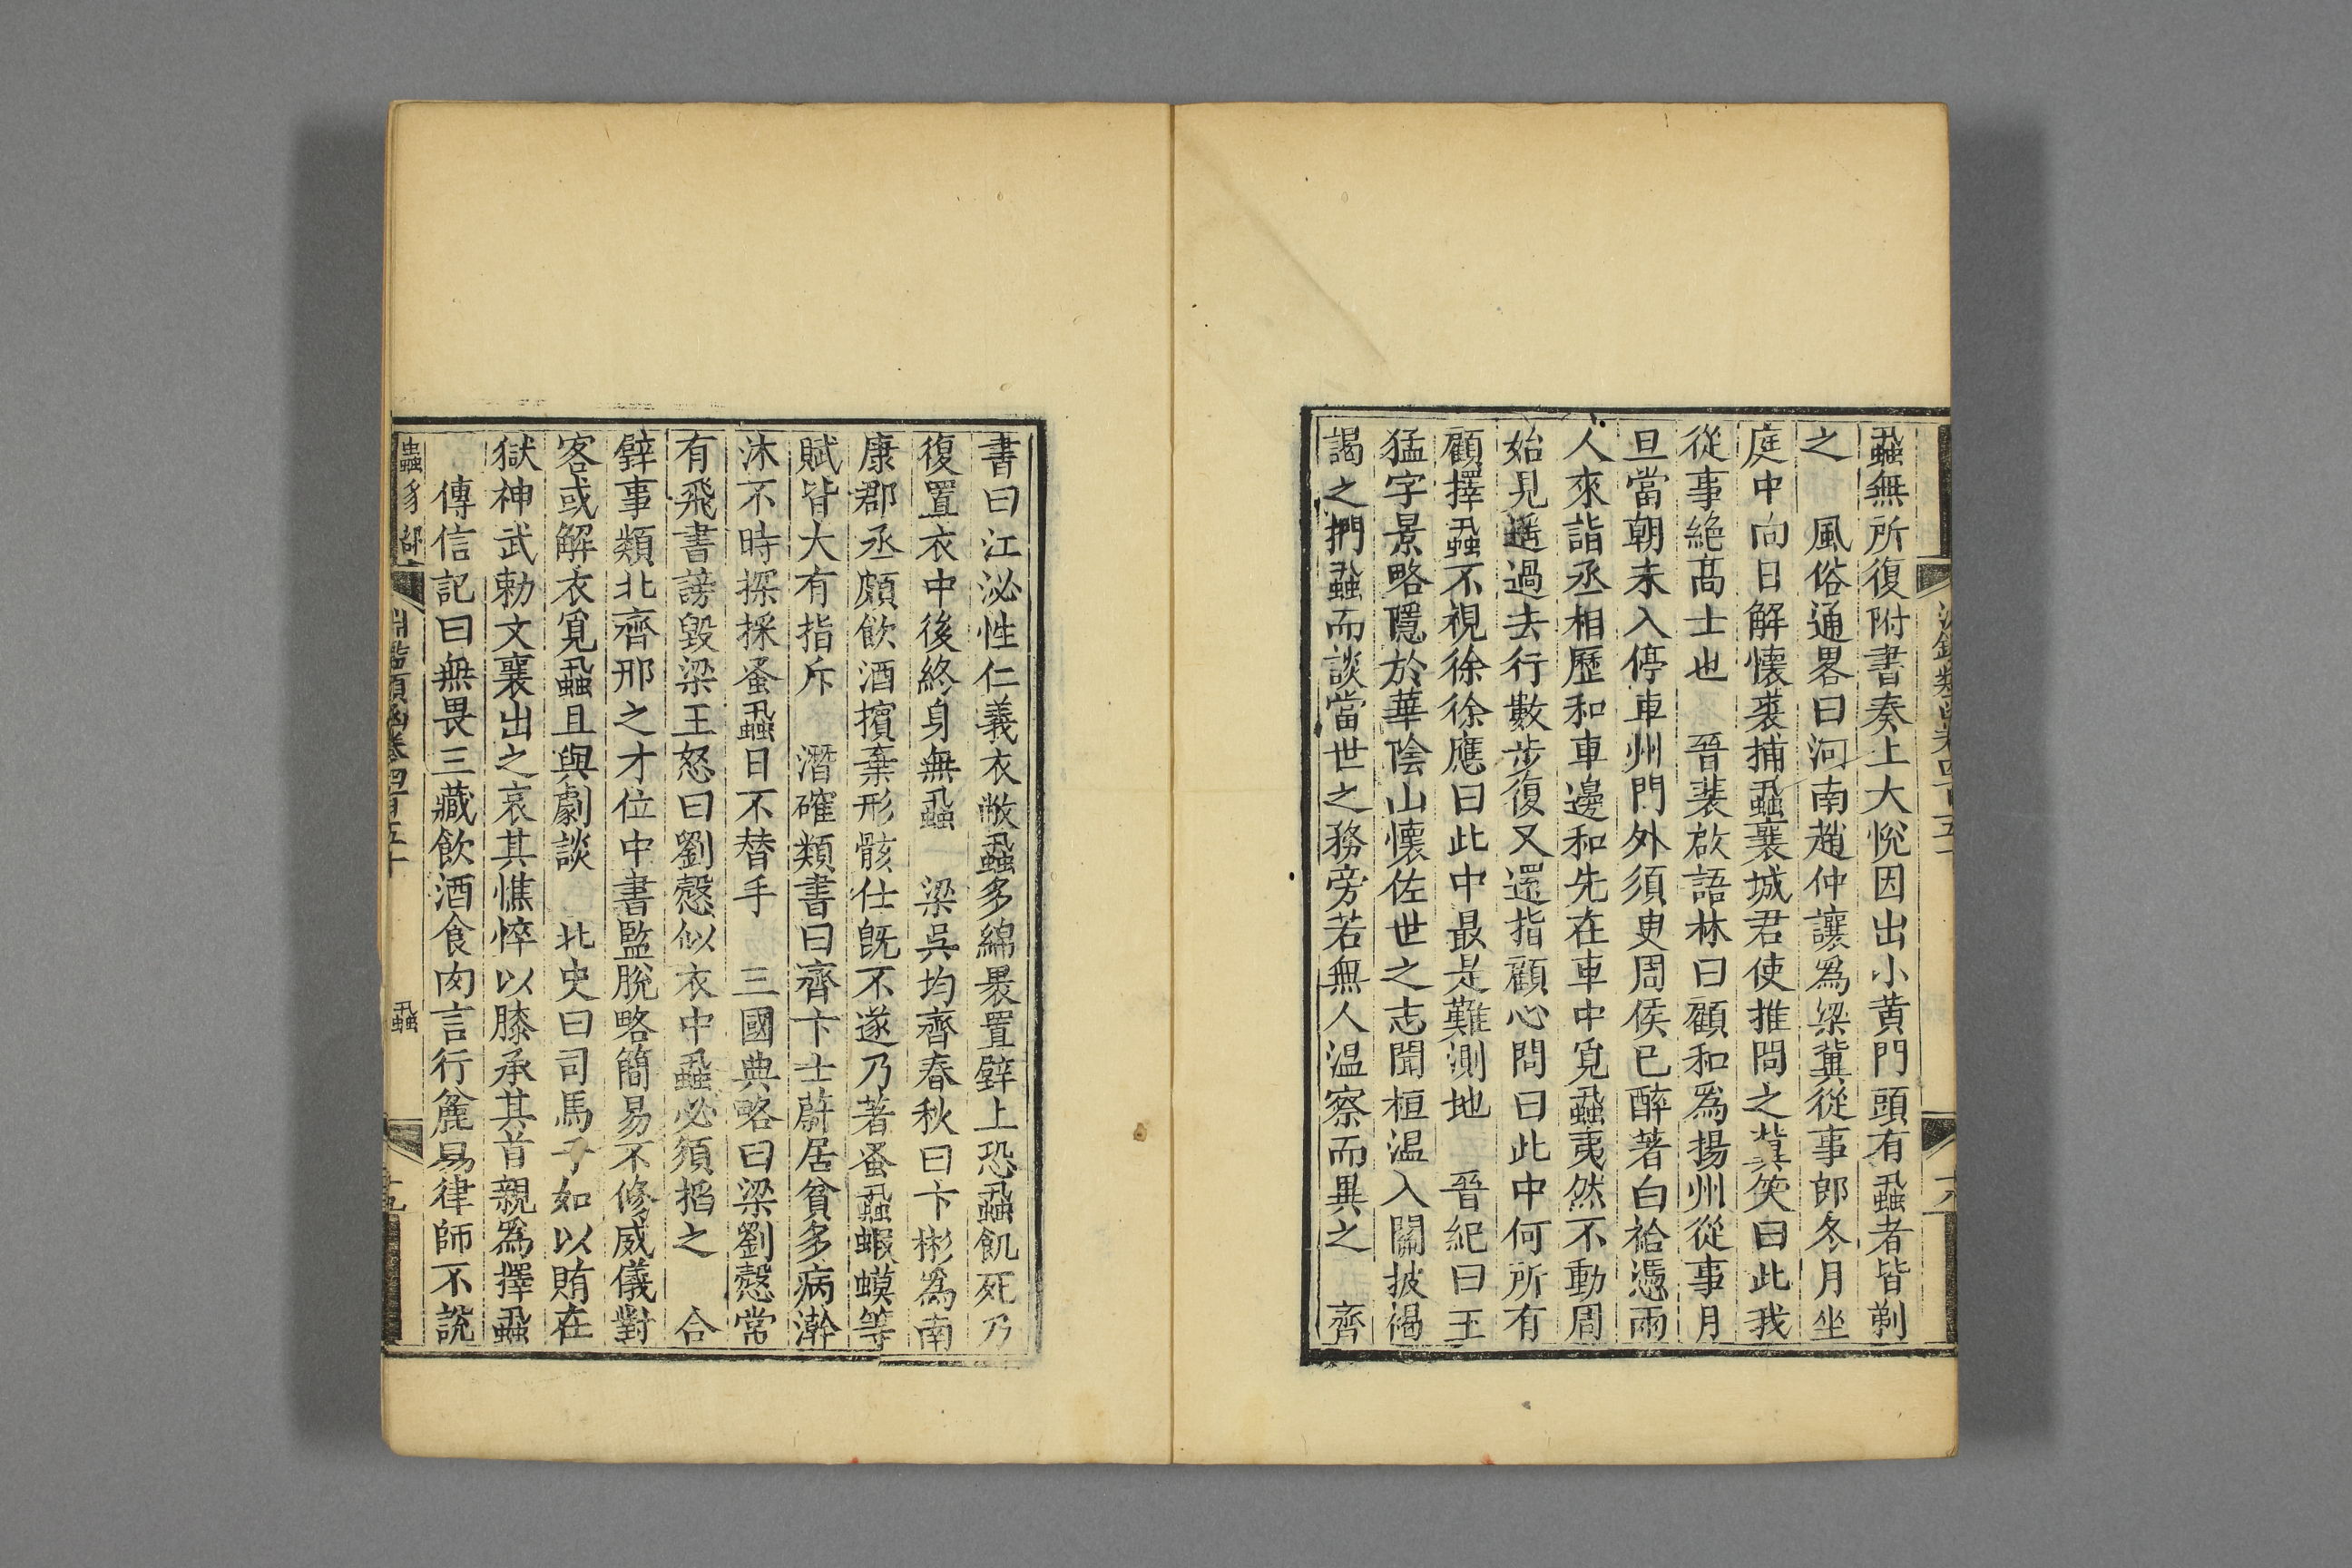 蝨無所復附書奏上大悅因出小黃門頭有蝨者皆剃
之　風俗通畧曰河南趙仲讓爲梁冀從事郎冬月坐
庭中向日解懷裘捕蝨襄城君使推問之冀笑曰此我
從事絶髙士也　晉裴啟語林曰顧和爲揚州從事月
旦當朝未入停車州門外須臾周侯已醉著白袷憑兩
人來詣丞相歷和車邊和先在車中覓蝨夷然不動周
始見遥過去行數步復又還指顧心問曰此中何所有
顧擇蝨不視徐徐應曰此中最是難測地　晉紀曰王
猛字景略隱於華陰山懷佐世之志聞桓温入關披褐
謁之捫蝨而談當世之務旁若無人温察而異之　齊
書曰江泌性仁義衣敝蝨多綿褁置壁上恐蝨飢死乃
復置衣中後終身無蝨　梁吳均齊春秋曰卞彬爲南
康郡丞頗飲酒擯棄形骸仕旣不遂乃著蚤蝨蝦蟆等
賦皆大有指斥　潛確類書曰齊卞士蔚居貧多病澣
沐不時探採蚤蝨日不替手　三國典略曰梁劉慤常
有飛書謗毀梁王怒曰劉慤似衣中蝨必須搯之　合
璧事類北齊邢之才位中書監脫略簡易不修威儀對
客或解衣覓蝨且與劇談　北史曰司馬子如以賄在
獄神武勅文襄出之哀其憔悴以膝承其首親爲擇蝨
傳信記曰無畏三藏飲酒食肉言行麄易律師不說
蟲豸部
淵鑑類函卷四百五十
蝨